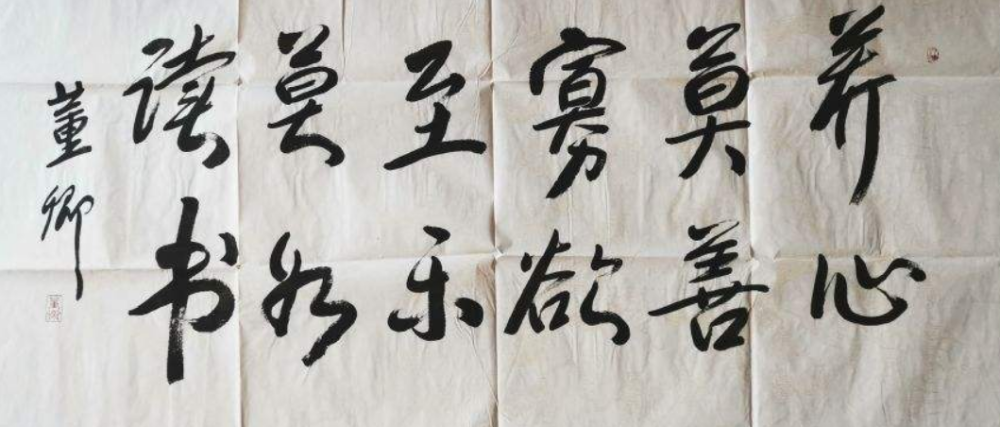 养心
莫善
寡欲
至乐
莫如
读书
董卿